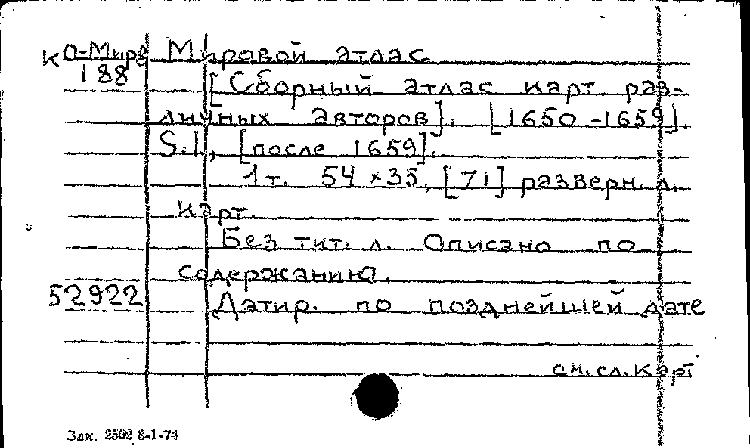 К О-Мир Мировой атлас
188
[Сборный атлас карт раз-
личных авторов]. [1650-1659].
S.l., [после 1659].
1 т. 54 × 35, [71] разверн. л.
карт.
Без тит. л. Описано по
содержанию.
52922 Датир. по позднейшей дате
см. сл. карт
Зак. 2502 8-1-74